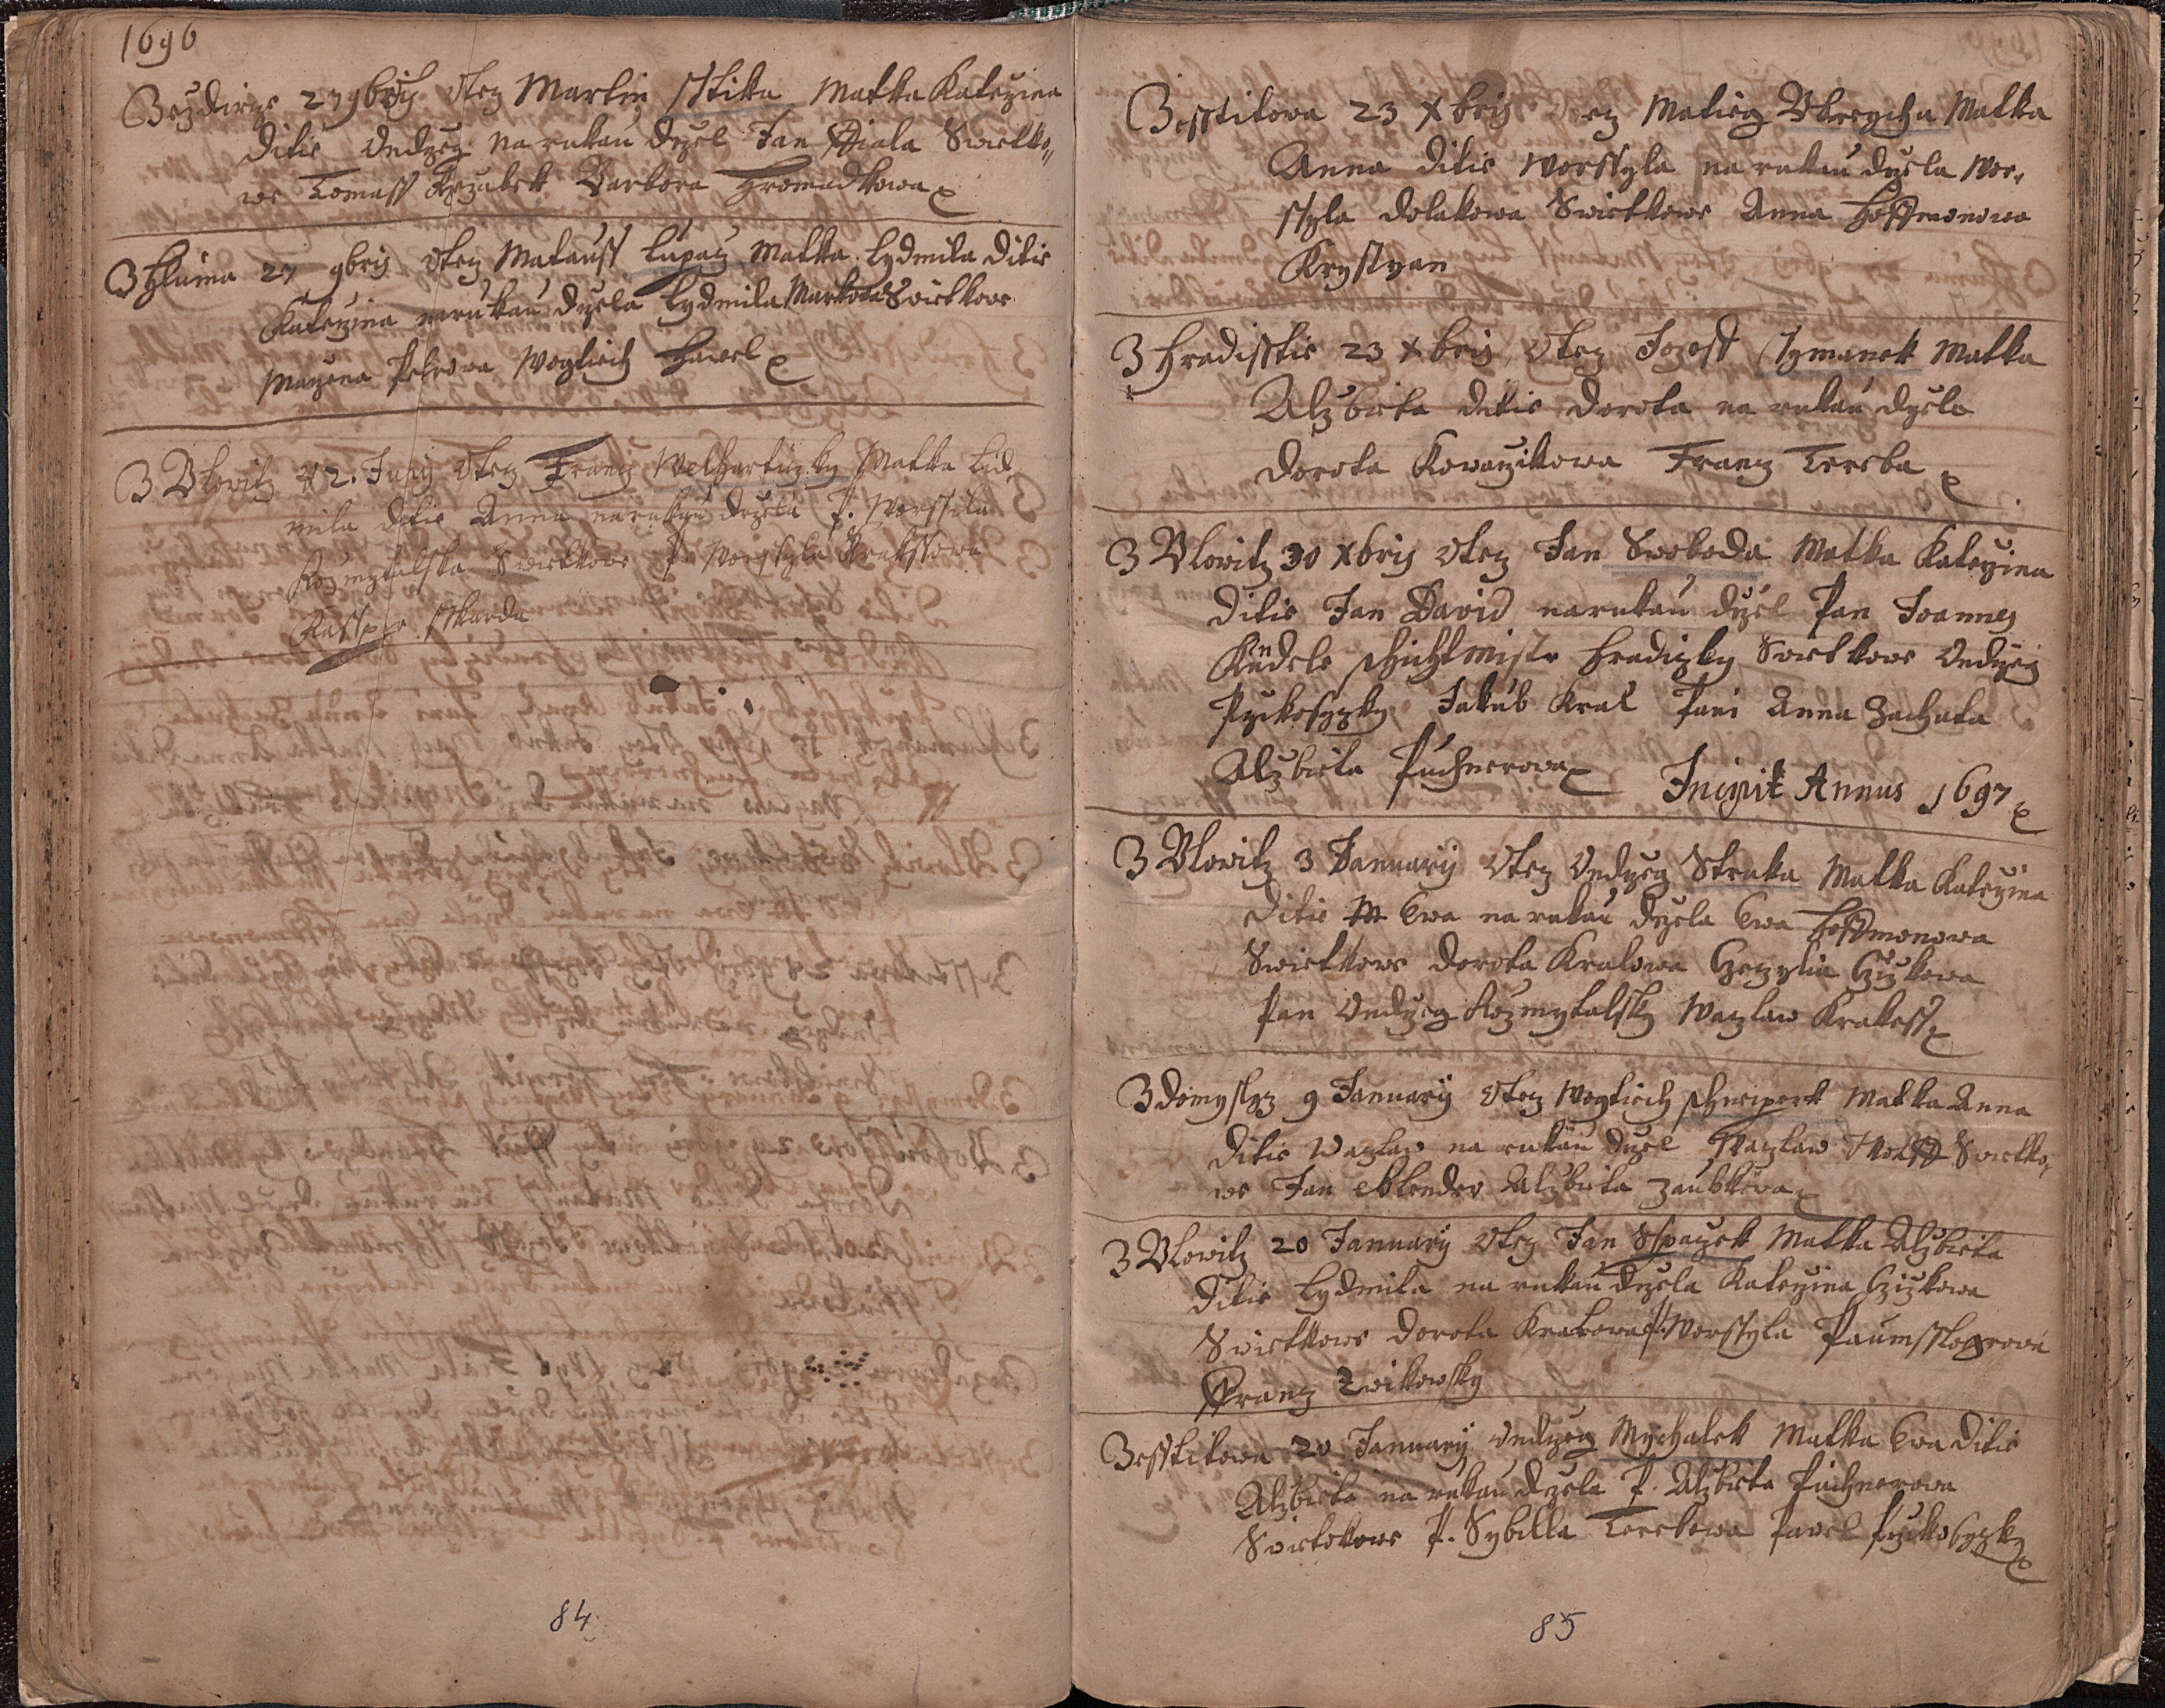 1696
Bezdirze 27 9bris Otecz Martin Sstika Matka Katerzina
Ditie Ondrzeg na rukau drzel Jan Ffiala Swietko,,
we Tomass Barbora Hromadkowa
Z Hluma 27 9bris Otecz Matauss Lupacz Matka Lydmila Ditie
Katerzina na rukau drzela Lydmila Markowa Swietkowe
Marzena Petrowa Wogtiech Hawel
Z Blowitz 12. Otecz Francz Welharticzky Matka Lid
mila Ditie Anna na rukau drzela P. Worssila
Rozmytalska Swietkowe P. Worssyla Krakessowa
Kassper Sskarda
84
Z Sstitowa 23 Xbris Otecz Matieg Matka
Anna Ditie Worssyla na rukau drzela Wor,
ssyla Dolakowa Swietkowe Anna Hoffmonowa
Krystyan
Z Hradisstie 23 Xbris Otecz Jozeff Ssymanek Matka
Alzbieta Ditie Dorota na rukau drzela
Dorota Kowarzikowa Francz Tereba
Z Blowitz 30 Xbris Otecz Jan Swoboda Matka Katerzina
Ditie Jan David na rukau drzel Pan Joannes
Kündele Schichtmistr Hradiczky Swietkowe Ondrzeg
Przikosyczky Jakub Kral Pani Anna Zachata
Alzbieta Puchnerowa Incipit Annus 1697
Z Blowitz 3 Januarij Otecz Ondrzeg Straka Matka Katerzina
Ditie Ewa na rukau drzela Ewa Hoffmonowa
Swietkowe Dorota Kralowa Czeczylia Czizkowa
Pan Ondrzeg Rozmytalsky Waczlaw Krakess
Z Domyslicz 9 Januarij Otecz Wogtiech Schneiperk Matka Anna
Ditie Waczlaw na rukau drzel Waczlaw Swietko,
we Jan Eblender Alzbieta Zaubkowa
Z Blowitz 20 Januarij Otecz Jan Sspaczek Matka Alzbieta
Ditie Lydmila na rukau drzela Katerzina Czizkowa
Swietkowe Dorota Kralowa P. Worssyla Paumsslogrowa
Ffrancz Zwikowsky
Z Sstitowa 20 Januarij Ondrzeg Mychalek Matka Ewa Ditie
Alzbieta na rukau drzela P. Alzbieta Puchnerowa
Swietkowe P. Sybilla Terebowa Pawel Przikosyczky
85